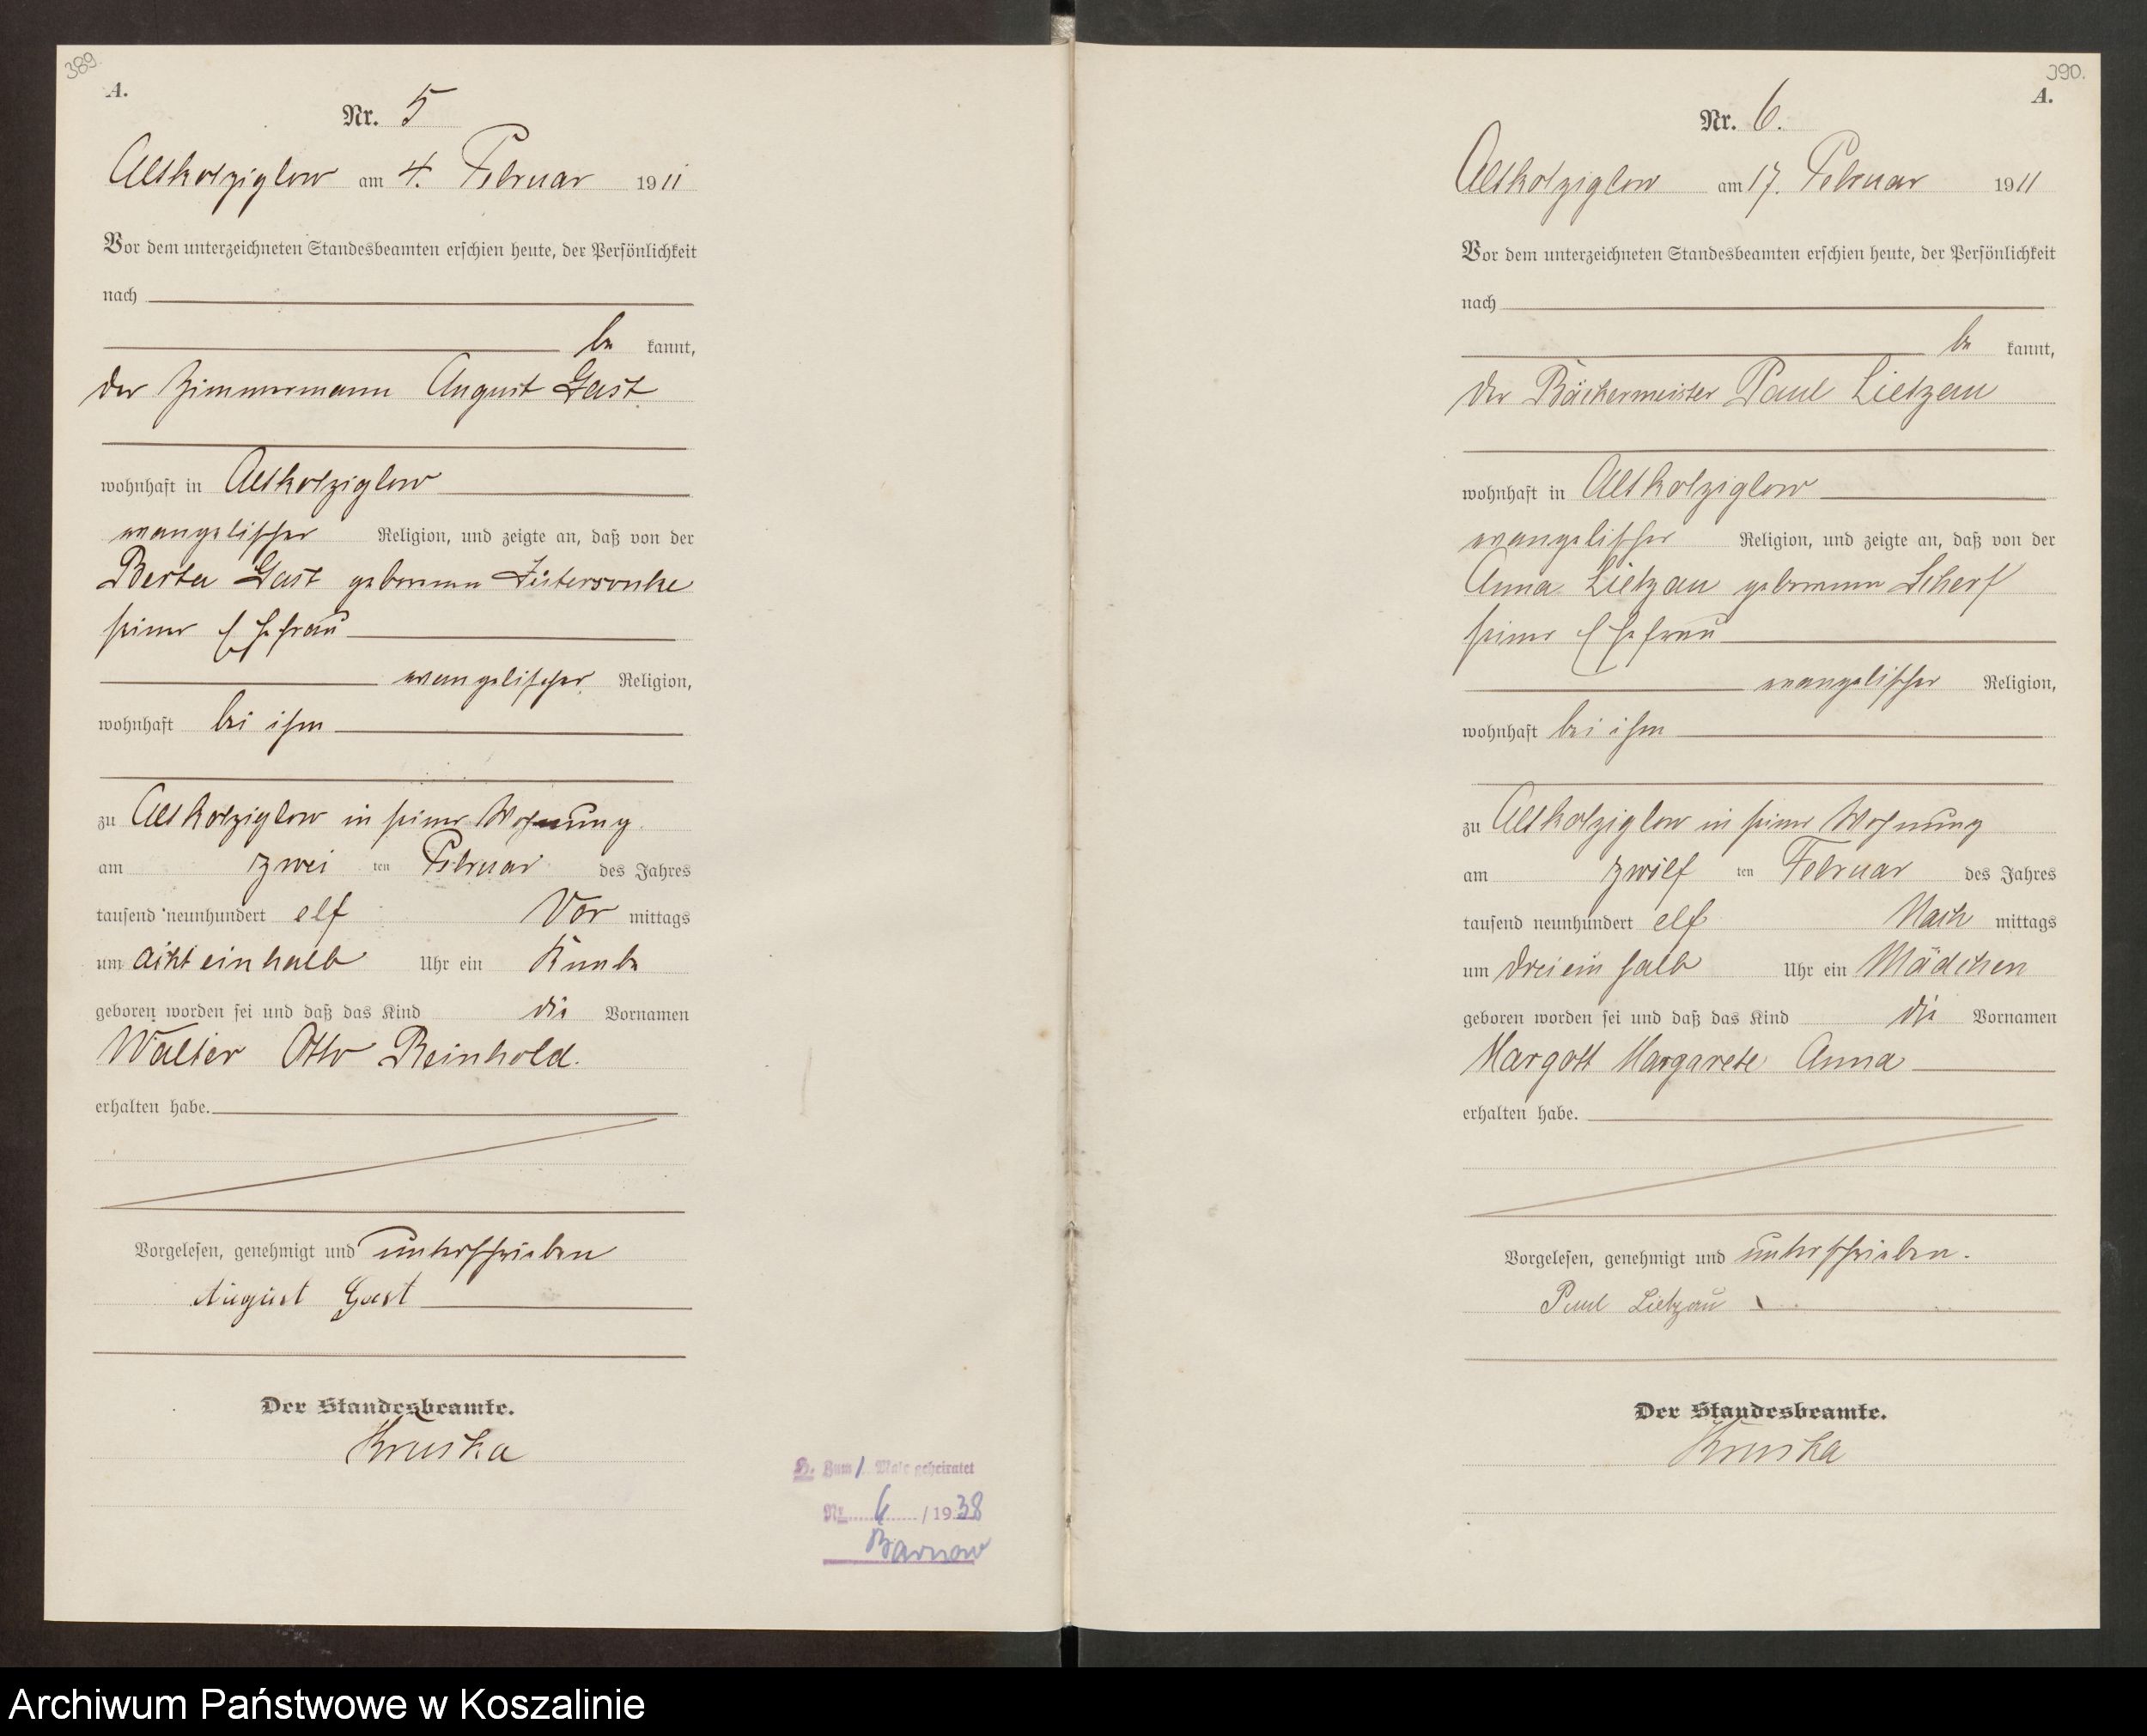 389.
A.
Nr. 5
Altkolziglow am 4. Februar 1911
Vor dem unterzeichneten Standesbeamten erschien heute, der Persönlichkeit
nach
be kannt,
der Zimmermann August Gast
wohnhaft in Altkolziglow
evangelischer Religion, und zeigte an, daß von der
Berta Gast geborenen
seiner Ehefrau
evangelischer Religion,
wohnhaft bei ihm
zu Altkolziglow in seiner Wohnung
am zwei ten Februar des Jahres
tausend neunhundert elf Vor mittags
um acht einhalb Uhr ein Knabe
geboren worden sei und daß das Kind die Vornamen
Walter Otto Reinhold.
erhalten habe.
Vorgelesen, genehmigt und unterschrieben
August Gast
Der Standesbeamte.
Kruska
H. Zum 1 Male geheiratet
Nr. 6 / 1938
Barnow
390.
A.
Nr. 6.
Altkolziglow am 17. Februar 1911
Vor dem unterzeichneten Standesbeamten erschien heute, der Persönlichkeit
nach
be kannt,
der Bäckermeister Paul Lietzau
wohnhaft in Altkolziglow
evangelischer Religion, und zeigte an, daß von der
Anna Lietzau geborenen Scherf
seiner Ehefrau
evangelischer Religion,
wohnhaft bei ihm
zu Altkolziglow in seiner Wohnung
am zwölf ten Februar des Jahres
tausend neunhundert elf Nach mittags
um drei ein halb Uhr ein Mädchen
geboren worden sei und daß das Kind die Vornamen
Margott Margarete Anna
erhalten habe.
Vorgelesen, genehmigt und unterschrieben.
Paul Lietzau
Der Standesbeamte.
Kruska
Archiwum Państwowe w Koszalinie